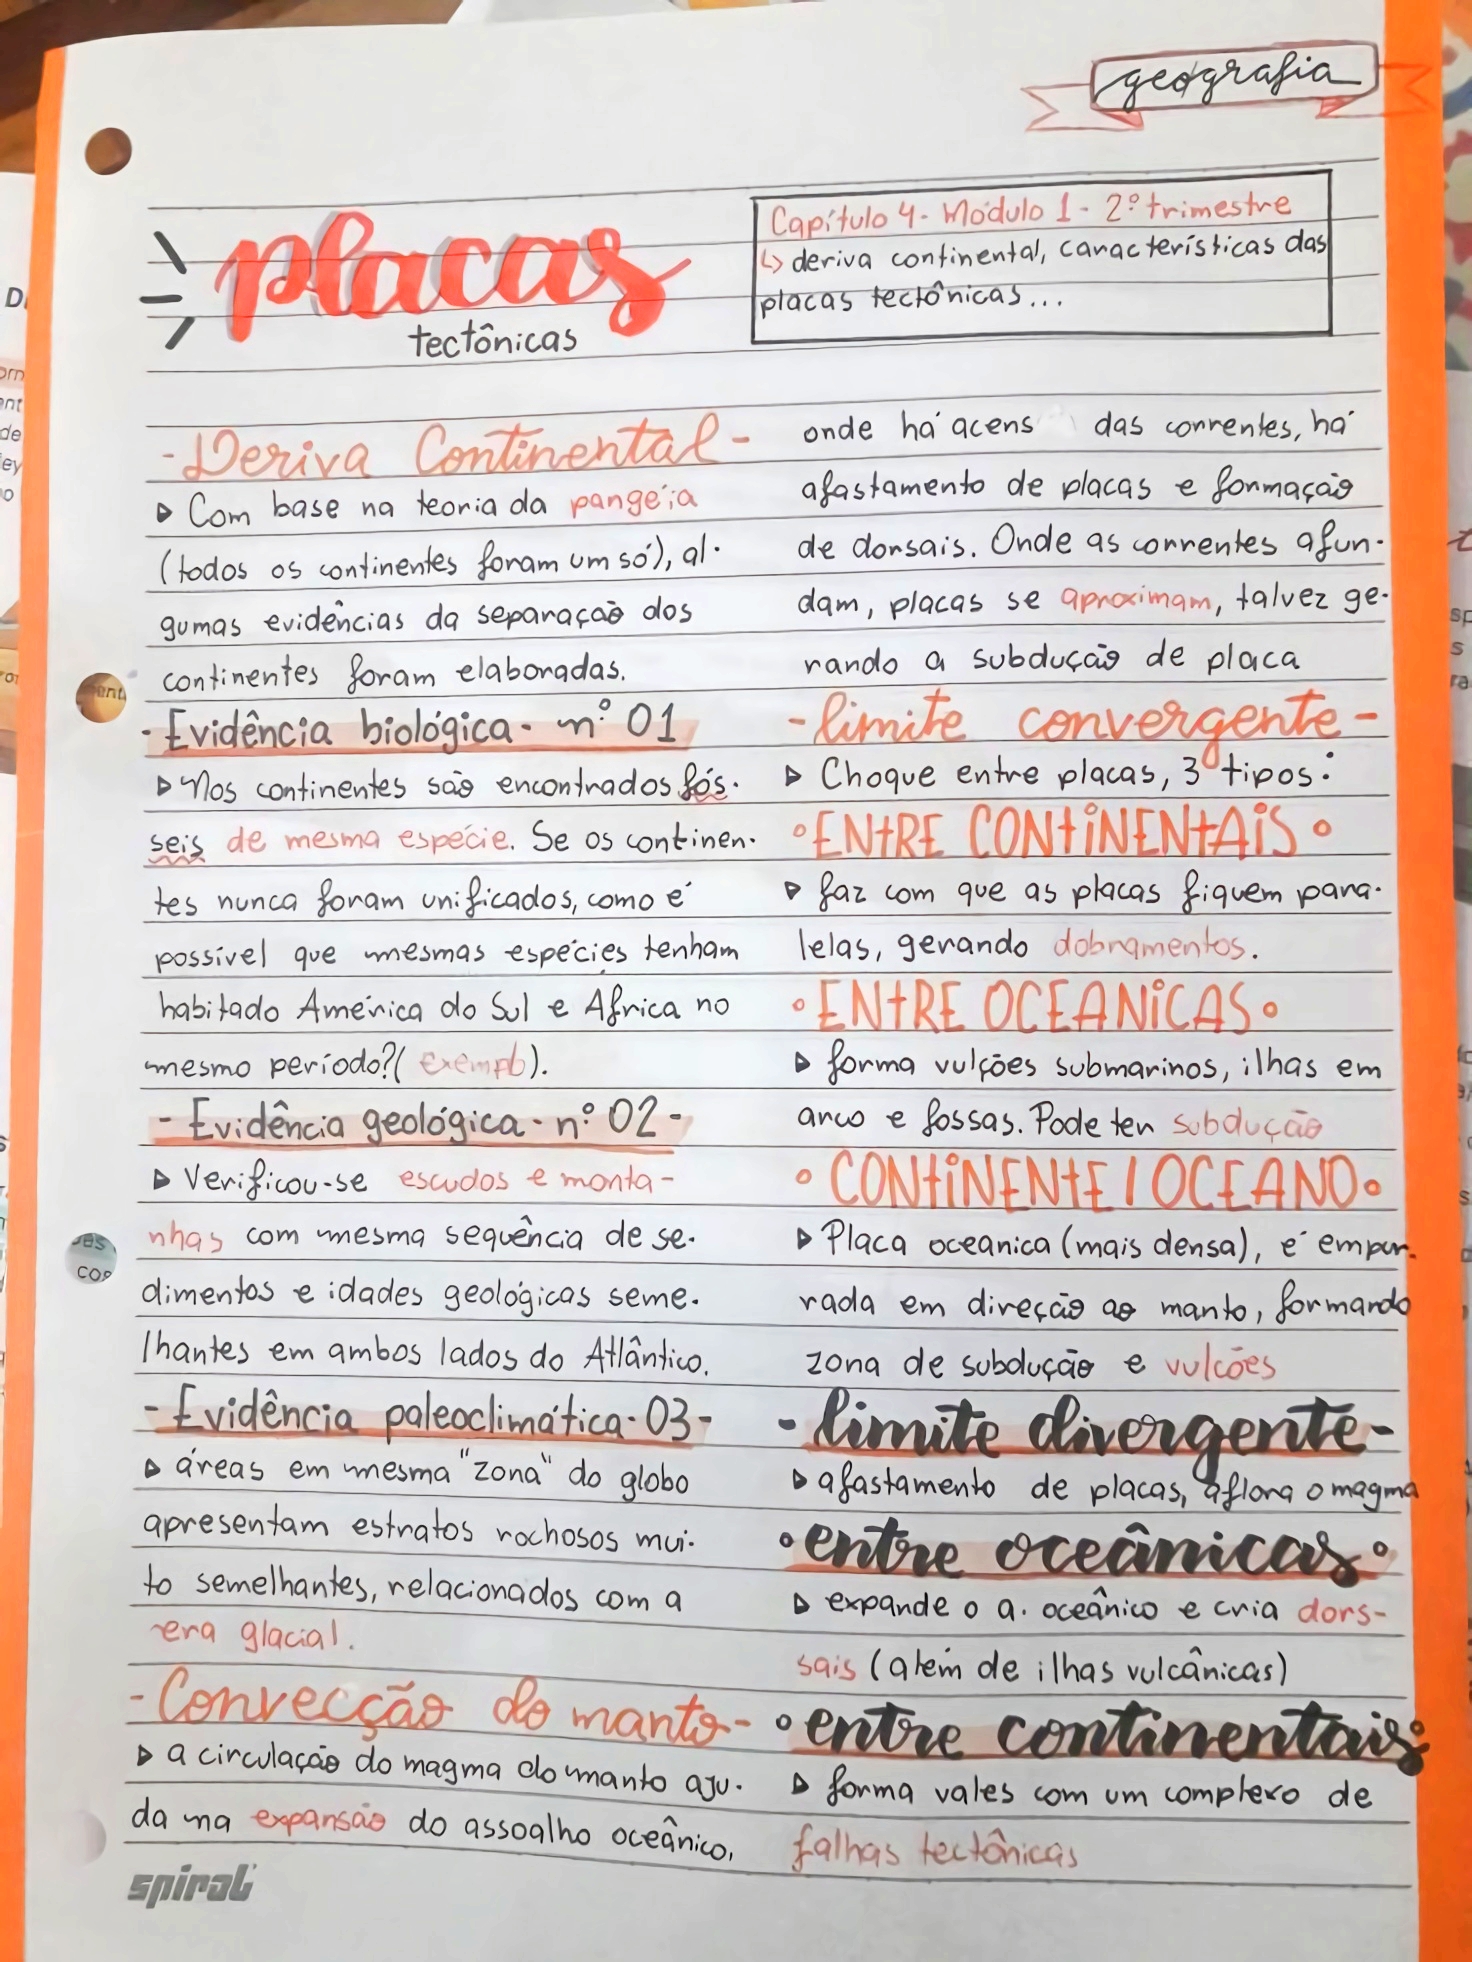 geografia
placas
tectônicas
Capítulo 4 - Módulo 1 - 2º trimestre
↳ deriva continental, características das
placas tectônicas...
- Deriva Continental -
▷ Com base na teoria da pangéia
(todos os continentes foram um só), al-
gumas evidências da separação dos
continentes foram elaboradas.
- Evidência biológica - nº 01
▷ Nos continentes são encontrados fós-
seis de mesma espécie. Se os continen-
tes nunca foram unificados, como é
possível que mesmas espécies tenham
habitado América do Sul e África no
mesmo período? (exemplo).
- Evidência geológica - nº 02 -
▷ Verificou-se escudos e monta-
nhas com mesma sequência de se-
dimentos e idades geológicas seme-
lhantes em ambos lados do Atlântico.
- Evidência paleoclimática - 03 -
▷ áreas em mesma "zona" do globo
apresentam estratos rochosos mui-
to semelhantes, relacionados com a
era glacial.
- Convecção do manto -
▷ a circulação do magma do manto aju-
da na expansão do assoalho oceânico,
spiral
onde há acens das correntes, há
afastamento de placas e formação
de dorsais. Onde as correntes afun-
dam, placas se aproximam, talvez ge-
rando a subdução de placa
- limite convergente -
▷ Choque entre placas, 3 tipos:
° ENTRE CONTINENTAIS °
▷ faz com que as placas fiquem para-
lelas, gerando dobramentos.
° ENTRE OCEANICAS °
▷ forma vulções submarinos, ilhas em
arco e fossas. Pode ter subdução
° CONTINENTE / OCEANO °
▷ Placa oceanica (mais densa), é empur-
rada em direção ao manto, formando
zona de subdução e vulcões
- limite divergente -
▷ afastamento de placas, aflora o magma
° entre oceânicas °
▷ expande o a. oceânico e cria dors-
sais (além de ilhas vulcânicas)
° entre continentais °
▷ forma vales com um complexo de
falhas tectônicas